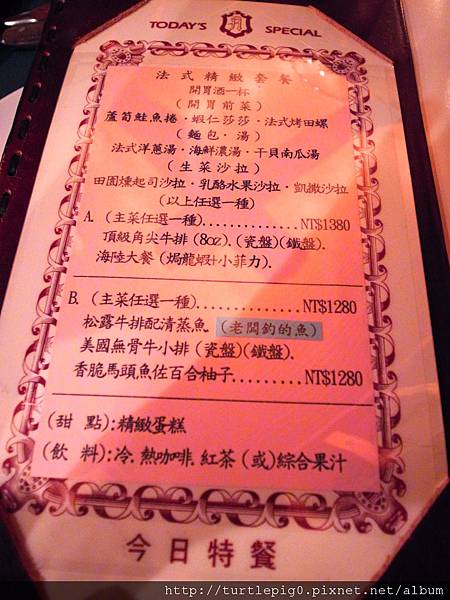 TODAY'S SPECIAL
法式精緻套餐
開胃酒一杯
(開胃前菜)
蘆筍鮭魚捲·蝦仁莎莎·法式烤田螺
(麵包·湯)
法式洋蔥湯·海鮮濃湯·干貝南瓜湯
(生菜沙拉)
田園燻起司沙拉·乳酪水果沙拉·凱撒沙拉
(以上任選一種)
A. (主菜任選一種)...............NT$1380
頂級角尖牛排(8oz).(瓷盤)(鐵盤).
海陸大餐(焗龍蝦+小菲力).
B. (主菜任選一種)...............NT$1280
松露牛排配清蒸魚.(老闆釣的魚)
美國無骨牛小排(瓷盤)(鐵盤).
香脆馬頭魚佐百合柚子..........NT$1280
(甜 點):精緻蛋糕
(飲 料):冷.熱咖啡.紅茶(或)綜合果汁
今日特餐
http://turtlepig0.pixnet.net/album